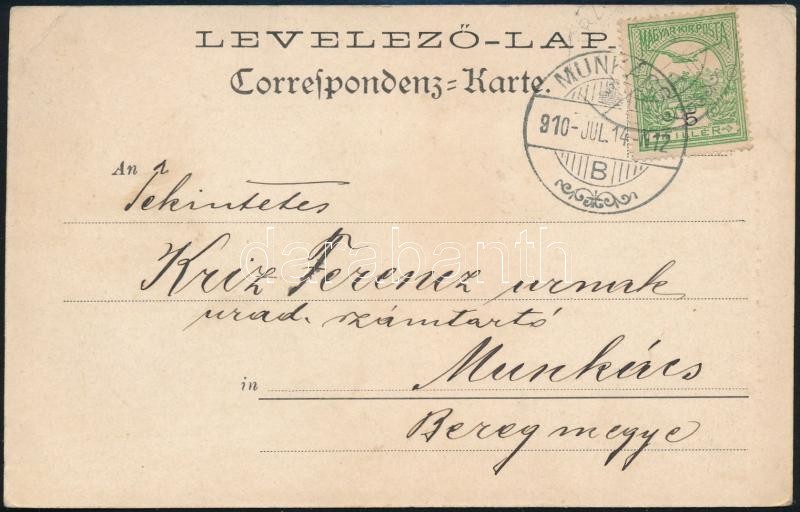 LEVELEZŐ-LAP.
Correspondenz-Karte.
MAGYAR KIR. POSTA
5
FILLÉR
MUNKÁCS
910-JUL. 14-N12
B
An
Tekintetes
Kriz Ferencz urnak
darabanth
urad. számtartó
in
Munkács
Bereg megye